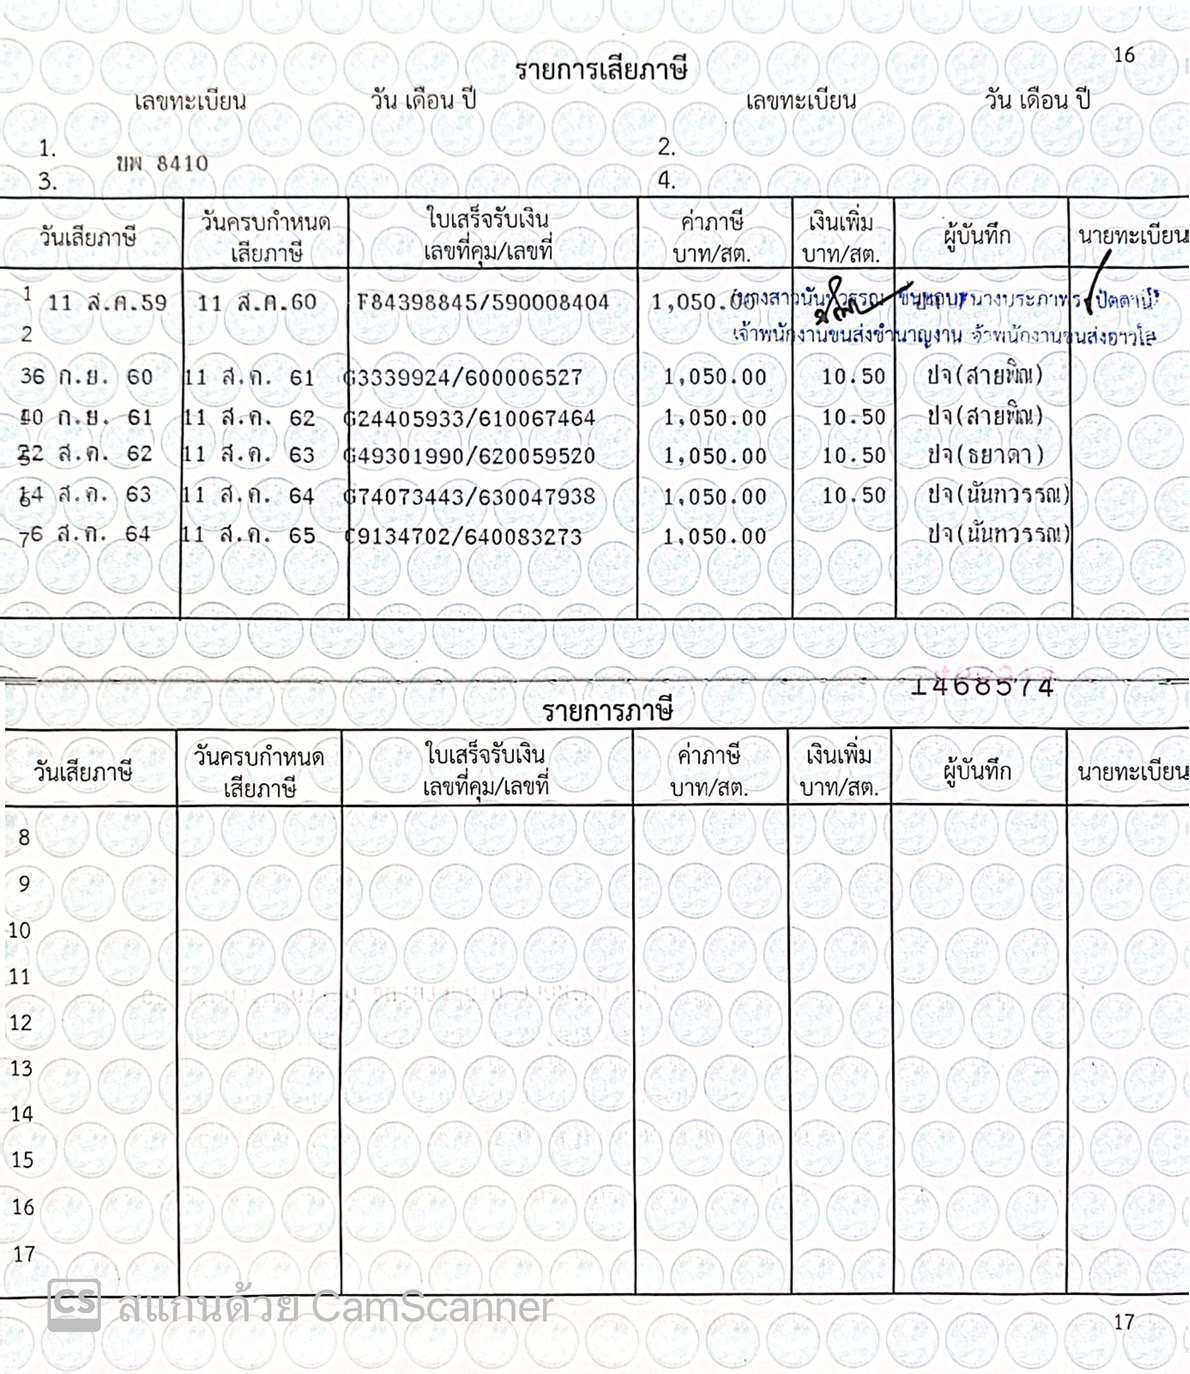 16
รายการเสียภาษี
เลขทะเบียน วัน เดือน ปี เลขทะเบียน วัน เดือน ปี
1. 2.
ขพ 8410
3. 4.
วันเสียภาษี วันครบกำหนดเสียภาษี ใบเสร็จรับเงิน เลขที่คุม/เลขที่ ค่าภาษี บาท/สต. เงินเพิ่ม บาท/สต. ผู้บันทึก นายทะเบียน
1 11 ส.ค.59 11 ส.ค.60 F84398845/590008404 1,050.00
2 เจ้าพนักงานขนส่งชำนาญงาน
3 6 ก.ย. 60 11 ส.ค. 61 G3339924/600006527 1,050.00 10.50 ปจ(สายพิณ)
10 ก.ย. 61 11 ส.ค. 62 G24405933/610067464 1,050.00 10.50 ปจ(สายพิณ)
22 ส.ค. 62 11 ส.ค. 63 G49301990/620059520 1,050.00 10.50 ปจ(ธยาดา)
14 ส.ค. 63 11 ส.ค. 64 G74073443/630047938 1,050.00 10.50 ปจ(นันทวรรณ)
7 6 ส.ค. 64 11 ส.ค. 65 C9134702/640083273 1,050.00 ปจ(นันทวรรณ)
1468574
รายการภาษี
วันเสียภาษี วันครบกำหนดเสียภาษี ใบเสร็จรับเงิน เลขที่คุม/เลขที่ ค่าภาษี บาท/สต. เงินเพิ่ม บาท/สต. ผู้บันทึก นายทะเบียน
8
9
10
11
12
13
14
15
16
17
CS สแกนด้วย CamScanner
17